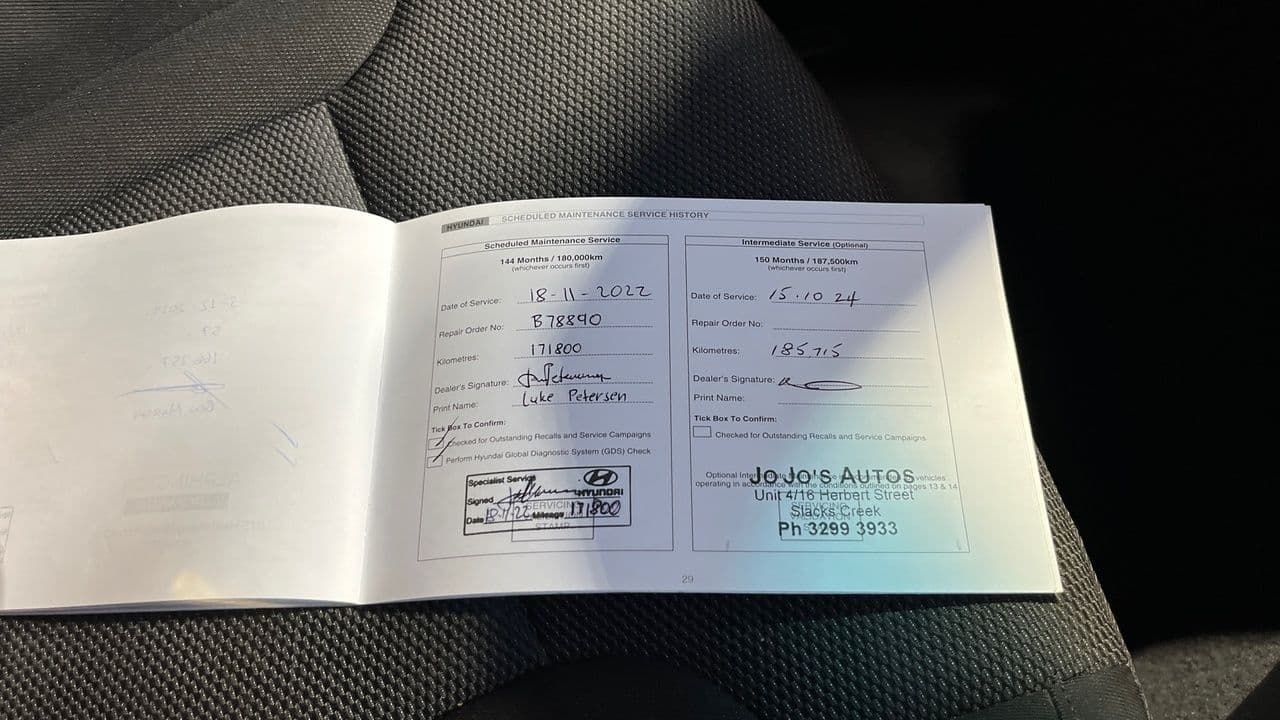 HYUNDAI SCHEDULED MAINTENANCE SERVICE HISTORY
Scheduled Maintenance Service
144 Months / 180,000km
(whichever occurs first)
Date of Service: 18-11-2022
Repair Order No: B78890
Kilometres: 171800
Dealer's Signature:
Print Name: Luke Petersen
Tick Box To Confirm:
Checked for Outstanding Recalls and Service Campaigns
Perform Hyundai Global Diagnostic System (GDS) Check
Specialist Service
HYUNDAI
Signed
Date Mileage 171800
SERVICING
STAMP
Intermediate Service (Optional)
150 Months / 187,500km
(whichever occurs first)
Date of Service: 15.10 24
Repair Order No:
Kilometres: 185715
Dealer's Signature:
Print Name:
Tick Box To Confirm:
Checked for Outstanding Recalls and Service Campaigns
Optional vehicles
operating in accordance with the conditions outlined on pages 13 & 14
JO JO'S AUTOS
Unit 4/16 Herbert Street
Slacks Creek
Ph 3299 3933
29